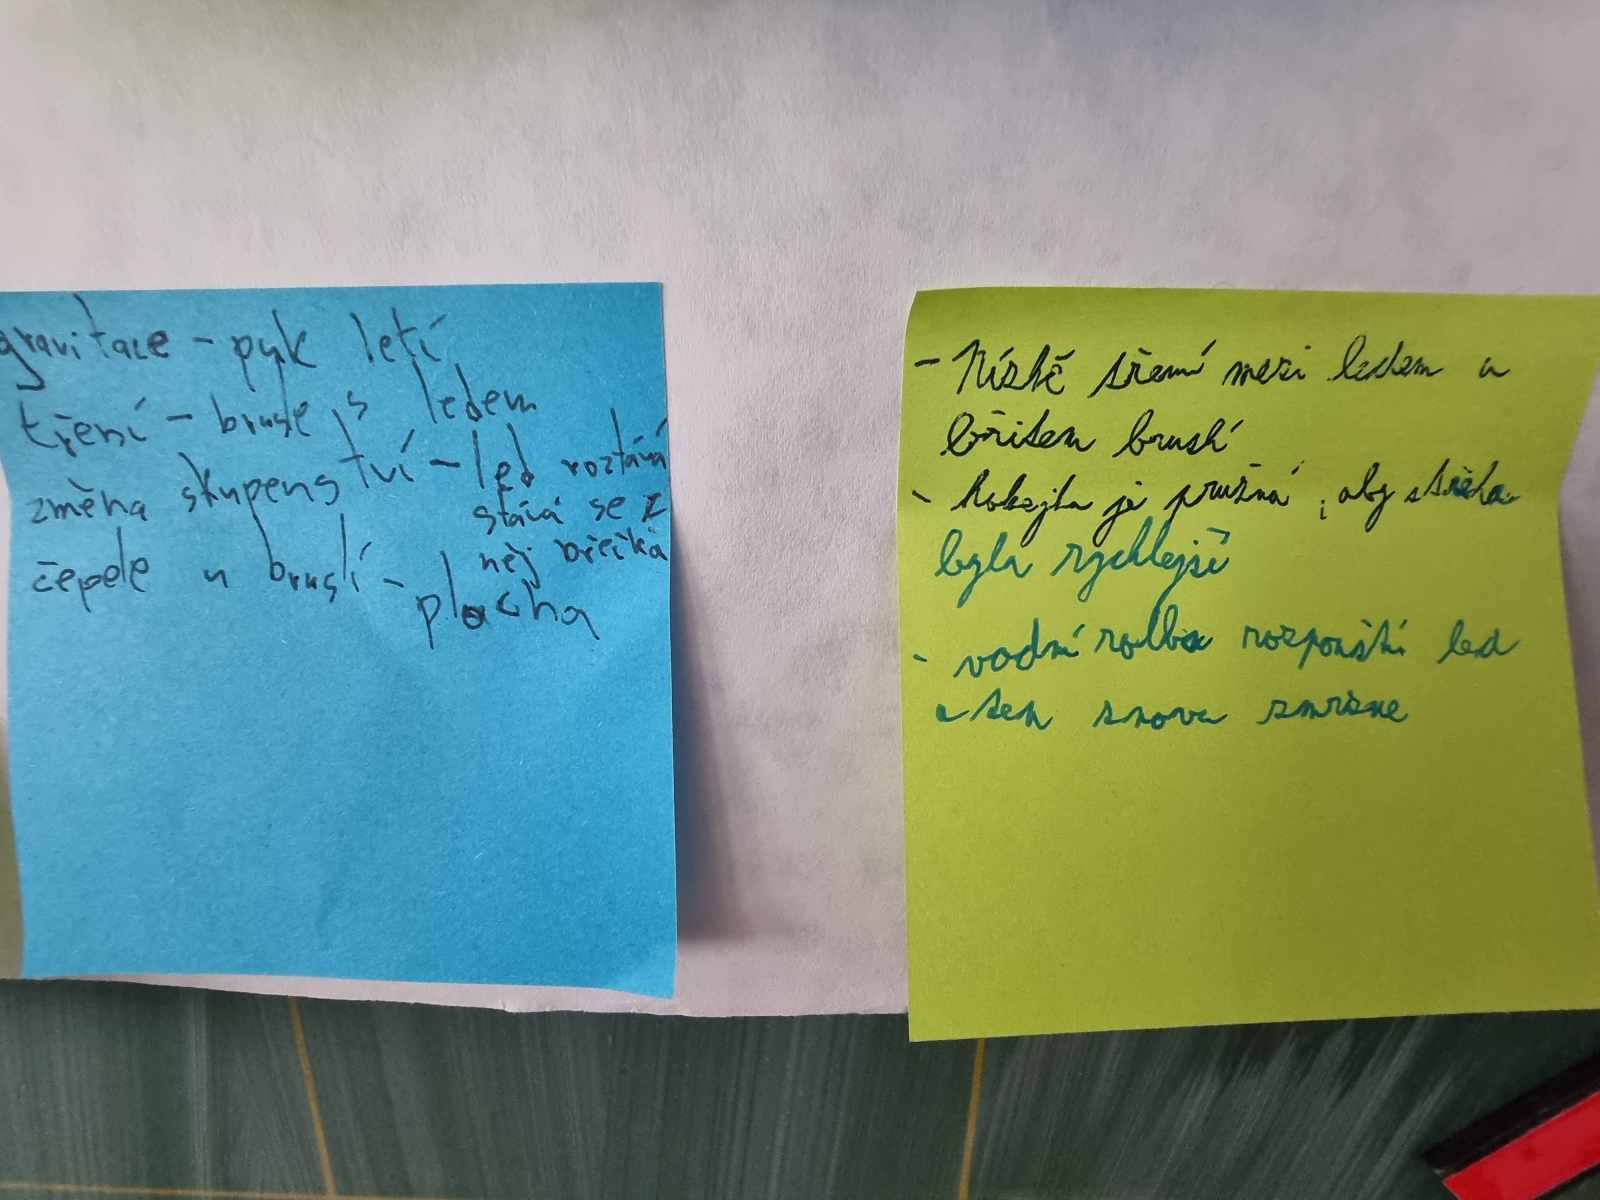 gravitace - puk letí
tření - brusle s ledem
změna skupenství - led roztává
stává se z
něj břečka
čepele u bruslí - plocha
- Nízké tření mezi ledem a
břitem bruslí
- hokejka je pružná, aby střela
byla rychlejší
- vodní rolba rozpouští led
a ten znova zmrzne